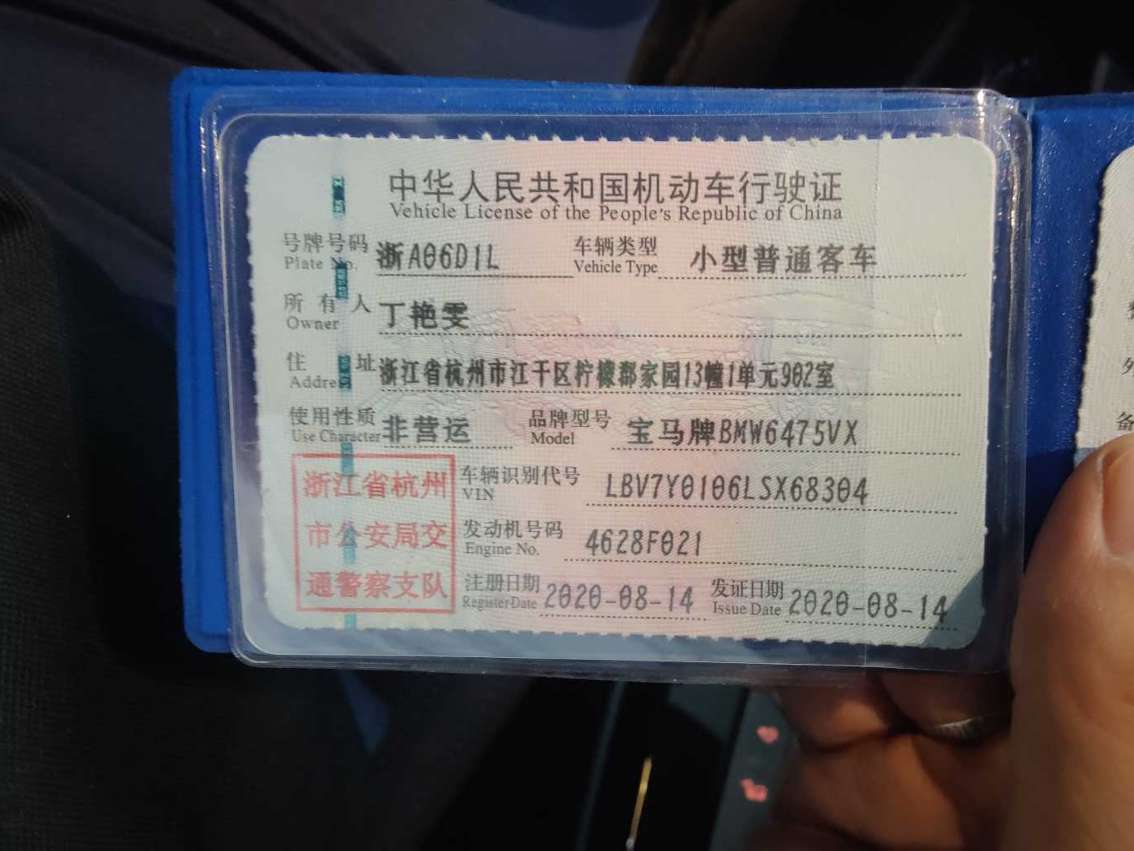 中华人民共和国机动车行驶证
Vehicle License of the People's Republic of China
号牌号码 浙A06D1L 车辆类型 小型普通客车
Plate No. Vehicle Type
所有人 丁艳雯
Owner
住址 浙江省杭州市江干区柠檬郡家园13幢1单元902室
Address
使用性质 非营运 品牌型号 宝马牌BMW6475VX
Use Character Model
浙江省杭州
市公安局交
通警察支队
车辆识别代号 LBV7Y0106LSX68304
VIN
发动机号码 4628F021
Engine No.
注册日期 2020-08-14 发证日期 2020-08-14
Register Date Issue Date